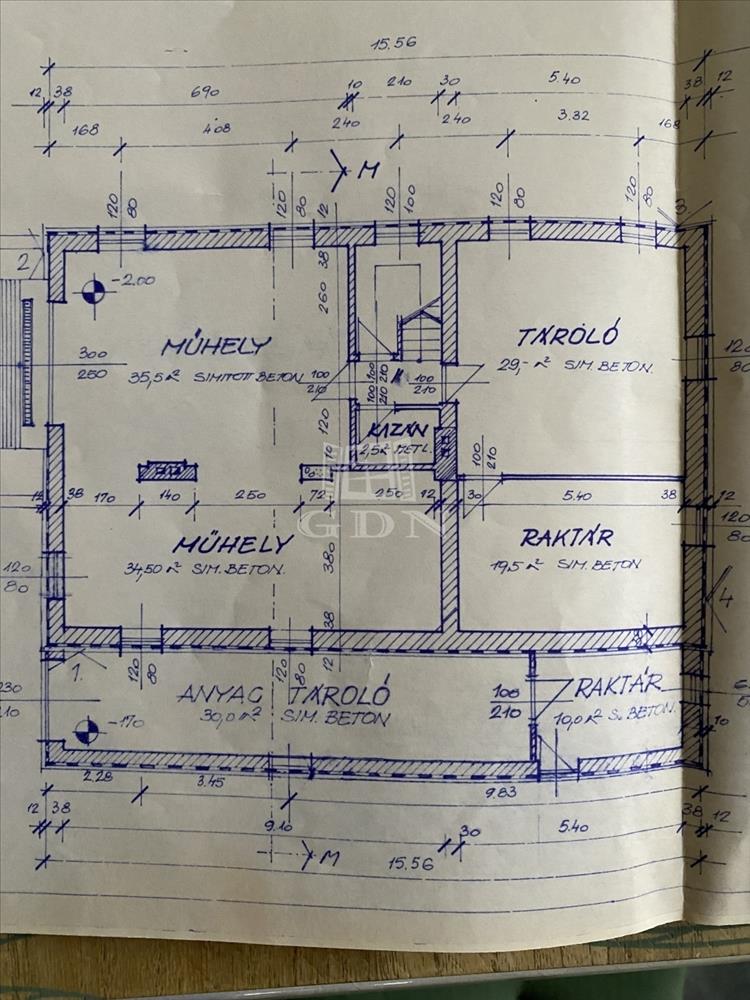 15.56
12 38 690 10 210 30 5.40 38 12
168 4.08 240 240 3.32 168
M
120 80 120 80 12 120 100 120 80 120 80
3
2
-2.00
38
260
MŰHELY
35,5 m² SIMITOTT BETON
TÁROLÓ
29,- m² SIM. BETON.
300
250
120
80
100
210
100
210
100
210
100
210
120
KAZÁN
2,5 m² METL.
10
100
210
GDN
12 38 170 140 250 72 250 12 30 5.40 38 12
MŰHELY
34,50 m² SIM. BETON.
RAKTÁR
19,5 m² SIM. BETON
380
120
80
120
80
4
38
12
1.
120
80
120
80
230
210
ANYAG TÁROLÓ
30,0 m² SIM. BETON
100
210
RAKTÁR
10,0 m² S. BETON.
-170
10
2.28 3.45 9.83
12 38 9.10 30 5.40 38 12
M
15.56